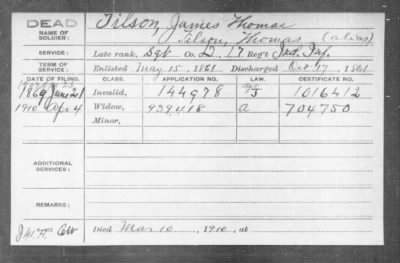 DEAD
NAME OF SOLDIER:
Tilson, James Thomas
Tilson, Thomas (alias)
SERVICE:
Late rank, Sgt Co. D, 17 Regt Ind. Inf.
TERM OF SERVICE:
Enlisted May 15, 1861 Discharged Oct 17, 1861
DATE OF FILING. CLASS. APPLICATION NO. LAW. CERTIFICATE NO.
1869 June 21 Invalid, 144978 1016412
1910 Apr 4 Widow, 939418 a 704750
Minor,
ADDITIONAL SERVICES:
REMARKS:
Died Mar 10, 1910, at